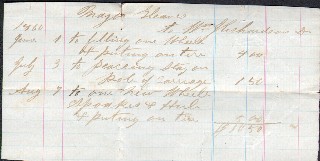 Major Gleaves
To Wm Richardson Dr
1866
June 1 to filling one Wheel
& puting on tire 4.00
July 3 to peaceing stay on
of carriage 1.50
Aug 7 to one new Wheel
Spoakes &
& puting on tire 5.00
$10.50